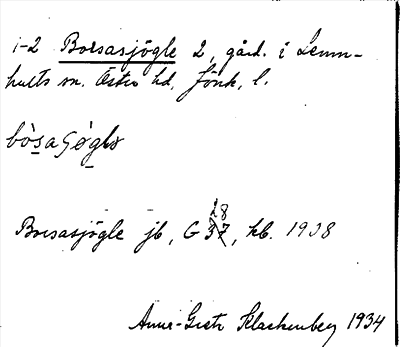 1-2 Borsasjögle 2, gård. i Lemn-
hults sn. Östra hd, Jönk. l.
bò̀saʃø̀glə
Borsasjögle jb, G 37 28, kb. 1938
Anna-Greta Klackenberg 1934